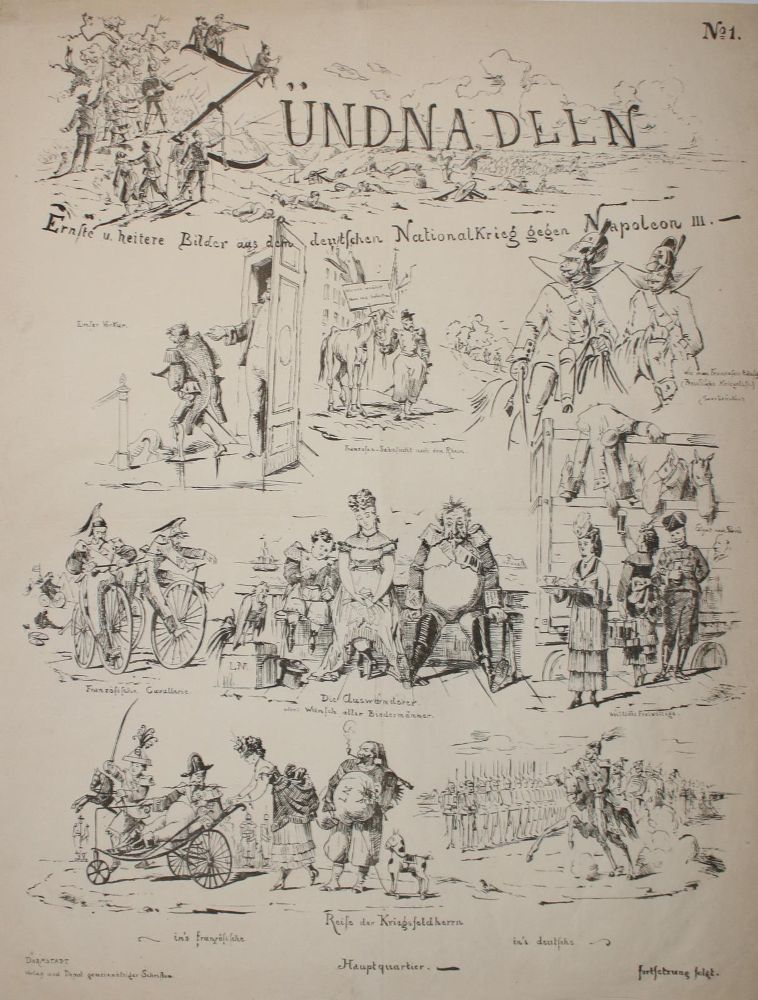 No 1.
ZÜNDNADELN
Ernste u. heitere Bilder aus dem deutschen NationalKrieg gegen Napoleon III. —
Emser Vorkur.
Franzosen-Sehnsucht nach dem Rhein.
wie man Franzosen
(Preussische Kriegslist)
Französische Cavallerie
L.N.
Die Auswanderer.
Wunsch aller Biedermänner.
weibliche Freiwillige.
Reise der Kriegsfeldherrn
in's französische
in's deutsche
Hauptquartier. —
DARMSTADT
Verlag und Depot gemeinnütziger Schriften.
fortsetzung folgt.